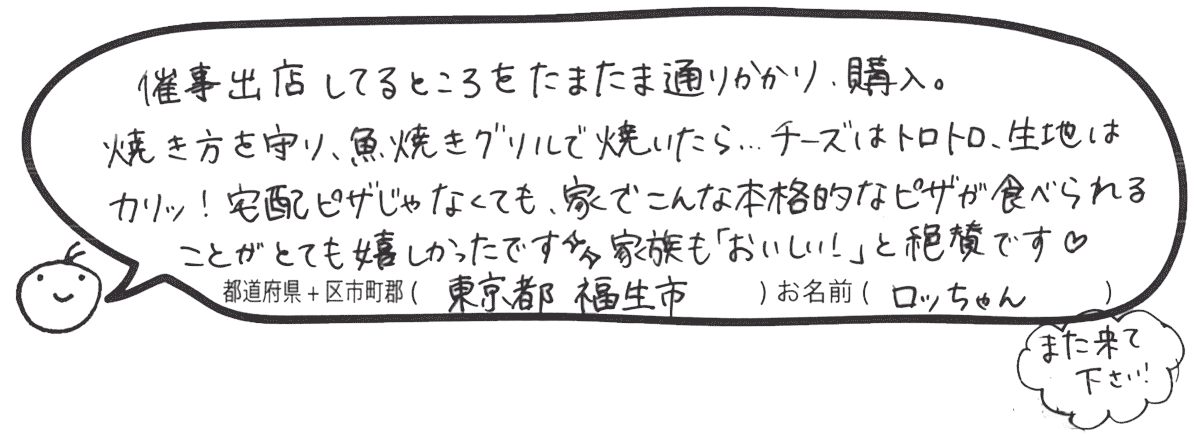 催事出店してるところをたまたま通りかかり、購入。
焼き方を守り、魚焼きグリルで焼いたら…チーズはトロトロ、生地は
カリッ！宅配ピザじゃなくても、家でこんな本格的なピザが食べられる
ことがとても嬉しかったです☆家族も「おいしい！」と絶賛です♡
都道府県＋区市町郡（ 東京都 福生市 ）お名前（ ロッちゃん ）
また来て
下さい！